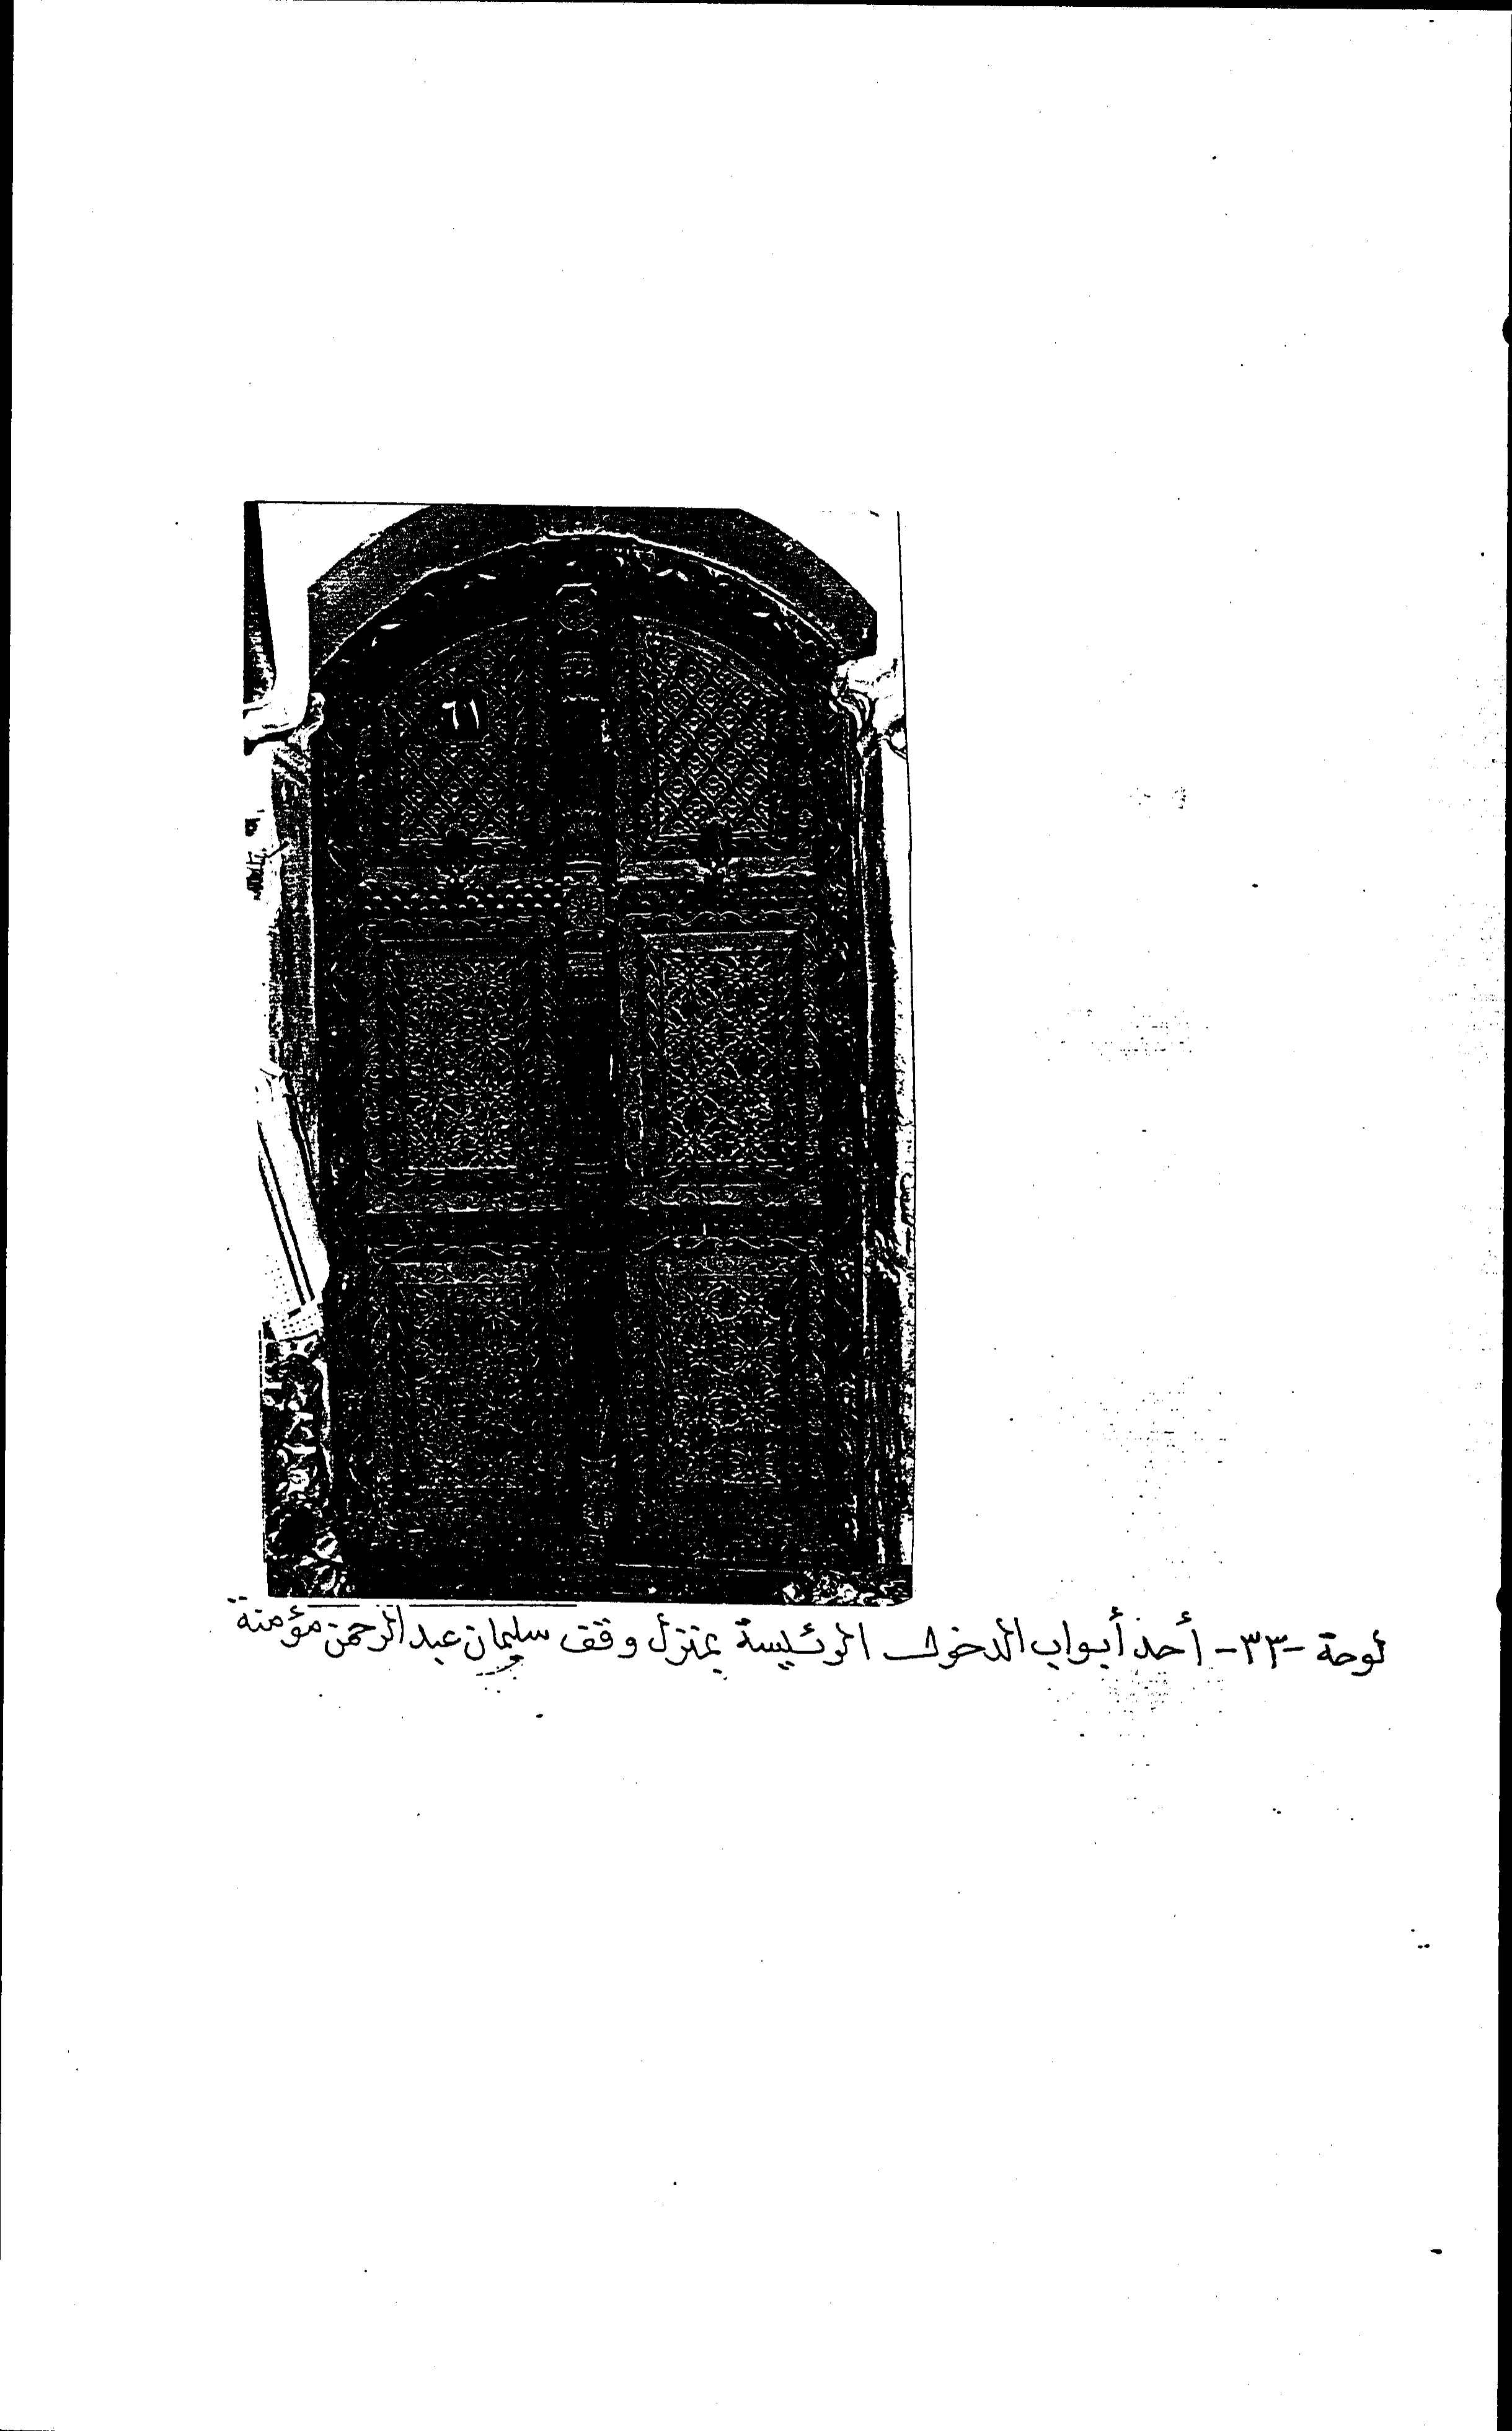 ٦١
لوحة -٣٣- أحد أبواب الدخول الرئيسة بمنزل وقف سليمان عبد الرحمن مؤمنة